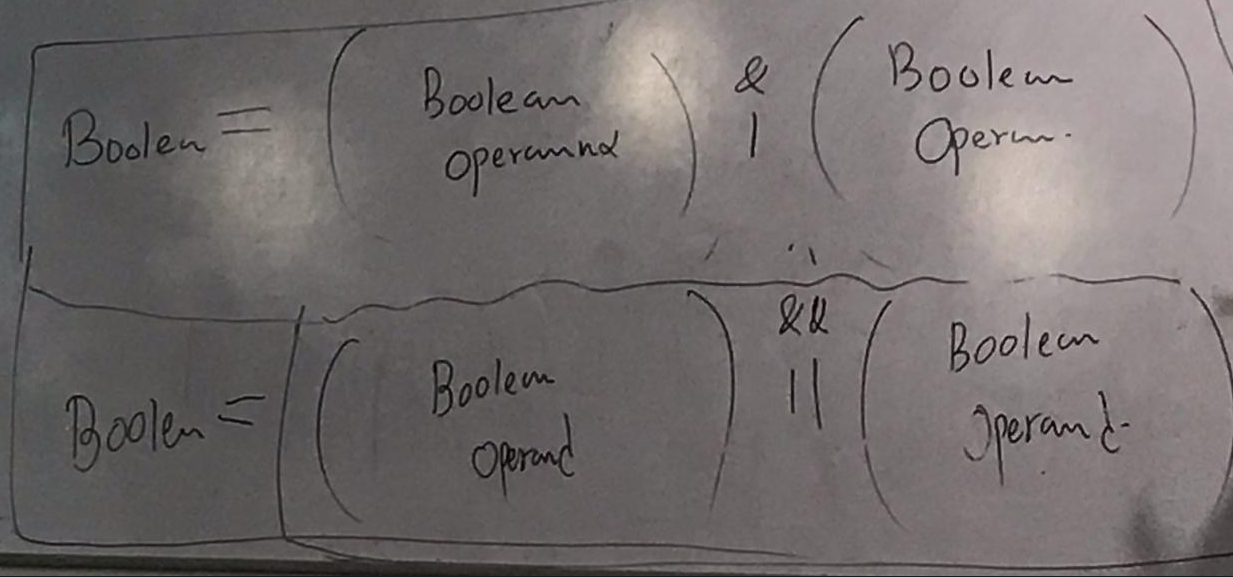 Boolen = ( Boolean operannd ) & | ( Boolean Operan. )
Boolen = ( Boolean operand ) && || ( Boolean operand. )